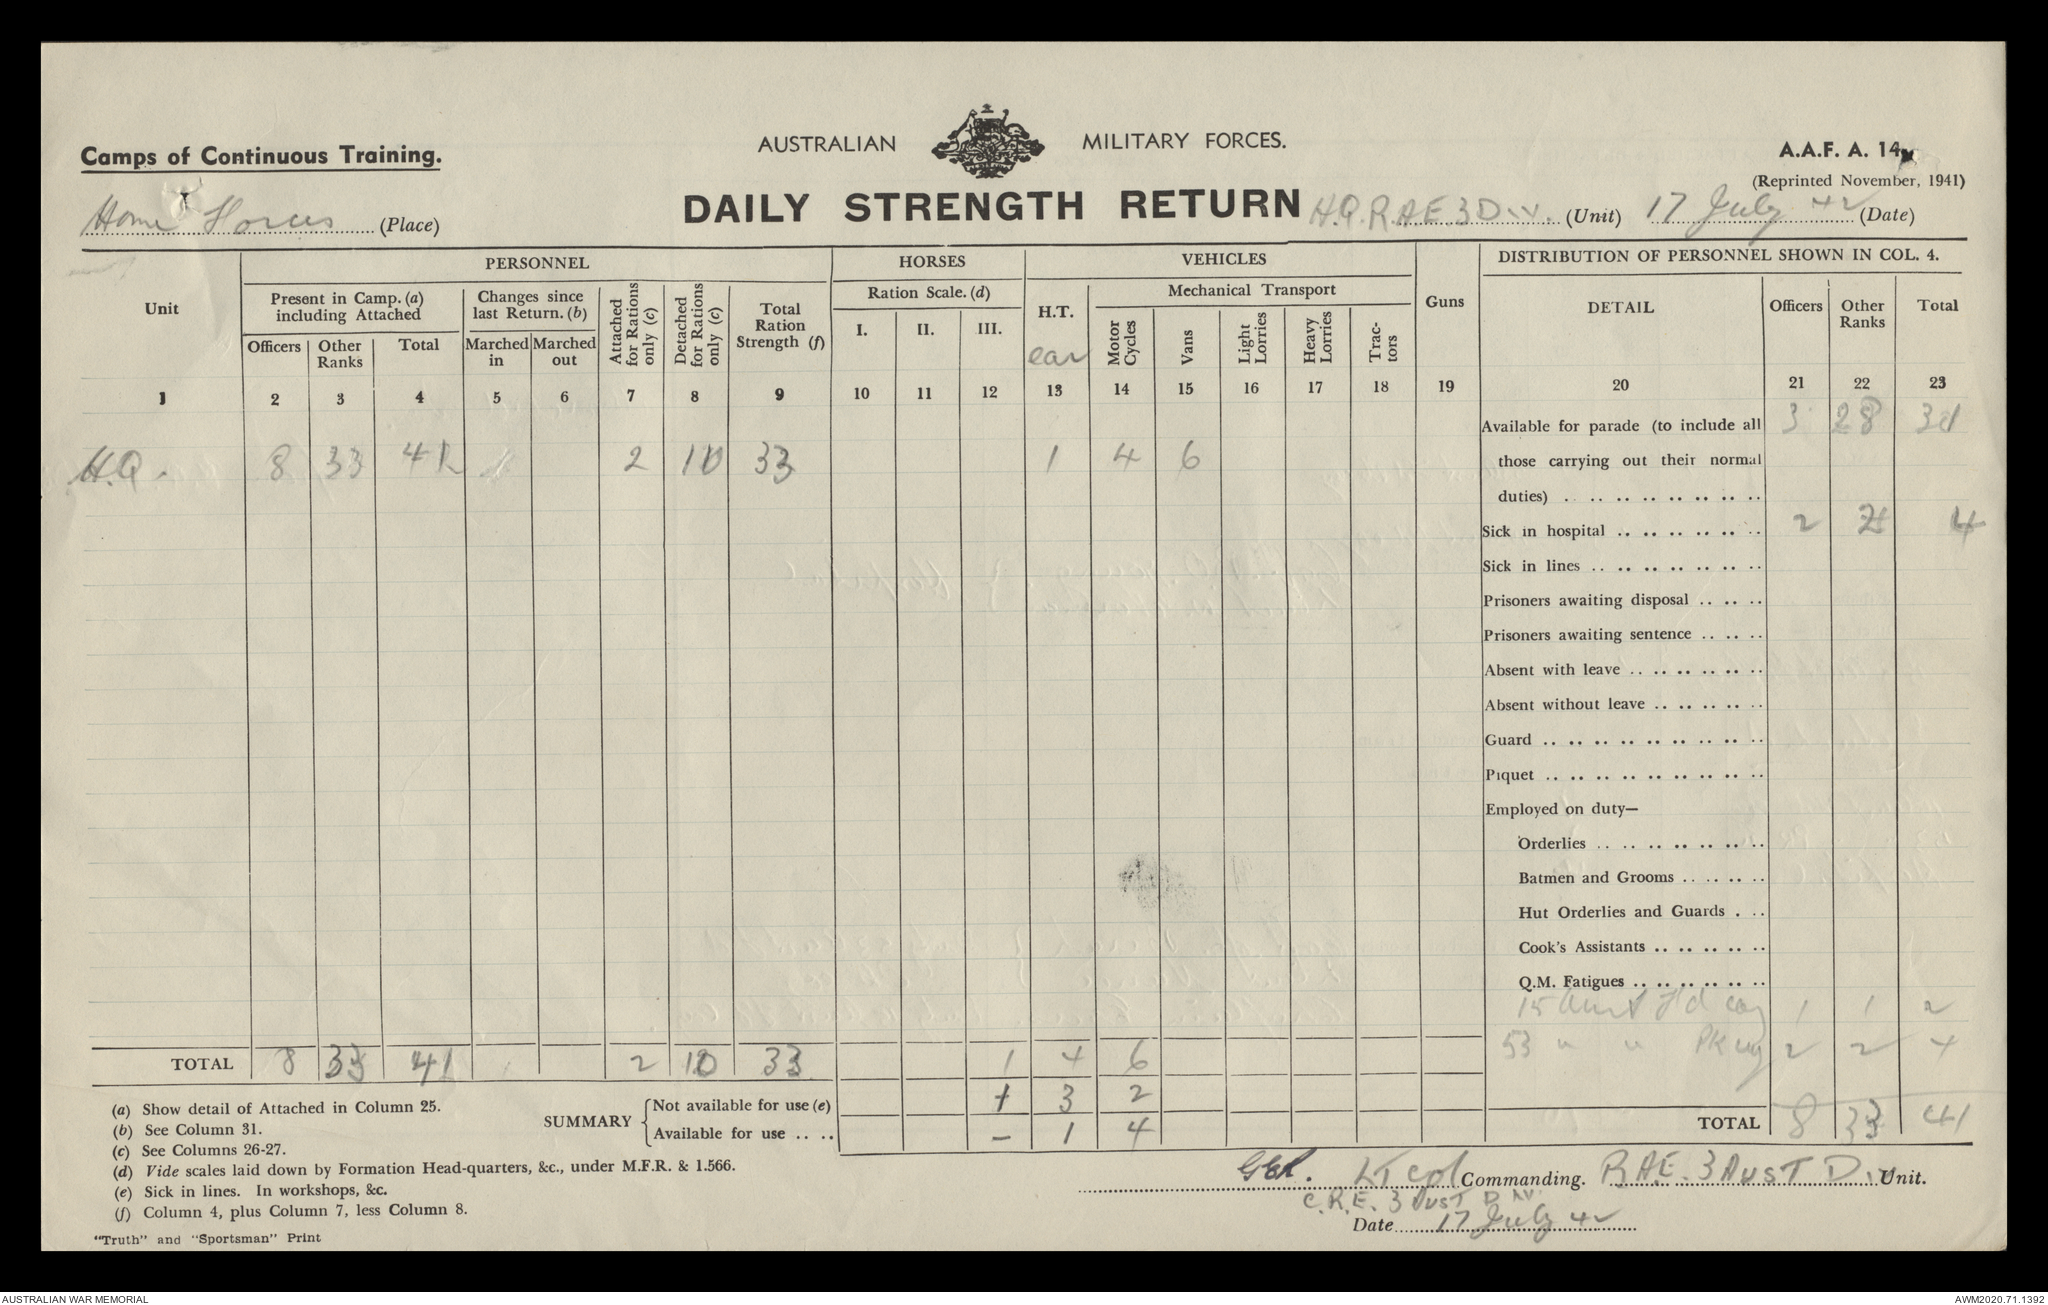 AUSTRALIAN MILITARY FORCES.
Camps of Continuous Training.
A.A.F. A. 14
(Reprinted November, 1941)
DAILY STRENGTH RETURN
Home Forces (Place)
H.Q. R.A.E 3 Div. (Unit) 17 July 42 (Date)
Unit
PERSONNEL
HORSES
VEHICLES
Guns
DISTRIBUTION OF PERSONNEL SHOWN IN COL. 4.
Present in Camp. (a) including Attached
Changes since last Return. (b)
Attached for Rations only (c)
Detached for Rations only (c)
Total Ration Strength (f)
Ration Scale. (d)
H.T.
car
Mechanical Transport
DETAIL Officers Other Ranks Total
Officers Other Ranks Total Marched in Marched out
I. II. III.
Motor Cycles Vans Light Lorries Heavy Lorries Tractors
1 2 3 4 5 6 7 8 9 10 11 12 13 14 15 16 17 18 19 20 21 22 23
H.Q. 8 33 41 2 10 33 1 4 6
Available for parade (to include all 3 28 31
those carrying out their normal
duties) . .. .. .. .. .. .. ..
Sick in hospital .. .. .. .. .. .. 2 2 4
Sick in lines .. .. .. .. .. .. ..
Prisoners awaiting disposal .. .. ..
Prisoners awaiting sentence .. .. ..
Absent with leave .. .. .. .. .. ..
Absent without leave .. .. .. .. ..
Guard .. .. .. .. .. .. .. .. ..
Piquet .. .. .. .. .. .. .. .. ..
Employed on duty—
Orderlies .. .. .. .. .. .. ..
Batmen and Grooms .. .. .. ..
Hut Orderlies and Guards . ..
Cook's Assistants .. .. .. .. ..
Q.M. Fatigues .. .. .. .. .. ..
15 Aust Fd Coy 1 1 2
53 " " Pk Coy 2 2 4
TOTAL 8 33 41 2 10 33 1 4 6
SUMMARY
Not available for use (e) + 3 2
Available for use .. .. — 1 4
TOTAL 8 33 41
(a) Show detail of Attached in Column 25.
(b) See Column 31.
(c) See Columns 26-27.
(d) Vide scales laid down by Formation Head-quarters, &c., under M.F.R. & 1.566.
(e) Sick in lines. In workshops, &c.
(f) Column 4, plus Column 7, less Column 8.
"Truth" and "Sportsman" Print
LT Col Commanding. R.A.E. 3 AUST Div Unit.
C.R.E. 3 Aust Div.
Date 17 July 42
AUSTRALIAN WAR MEMORIAL
AWM2020.71.1392